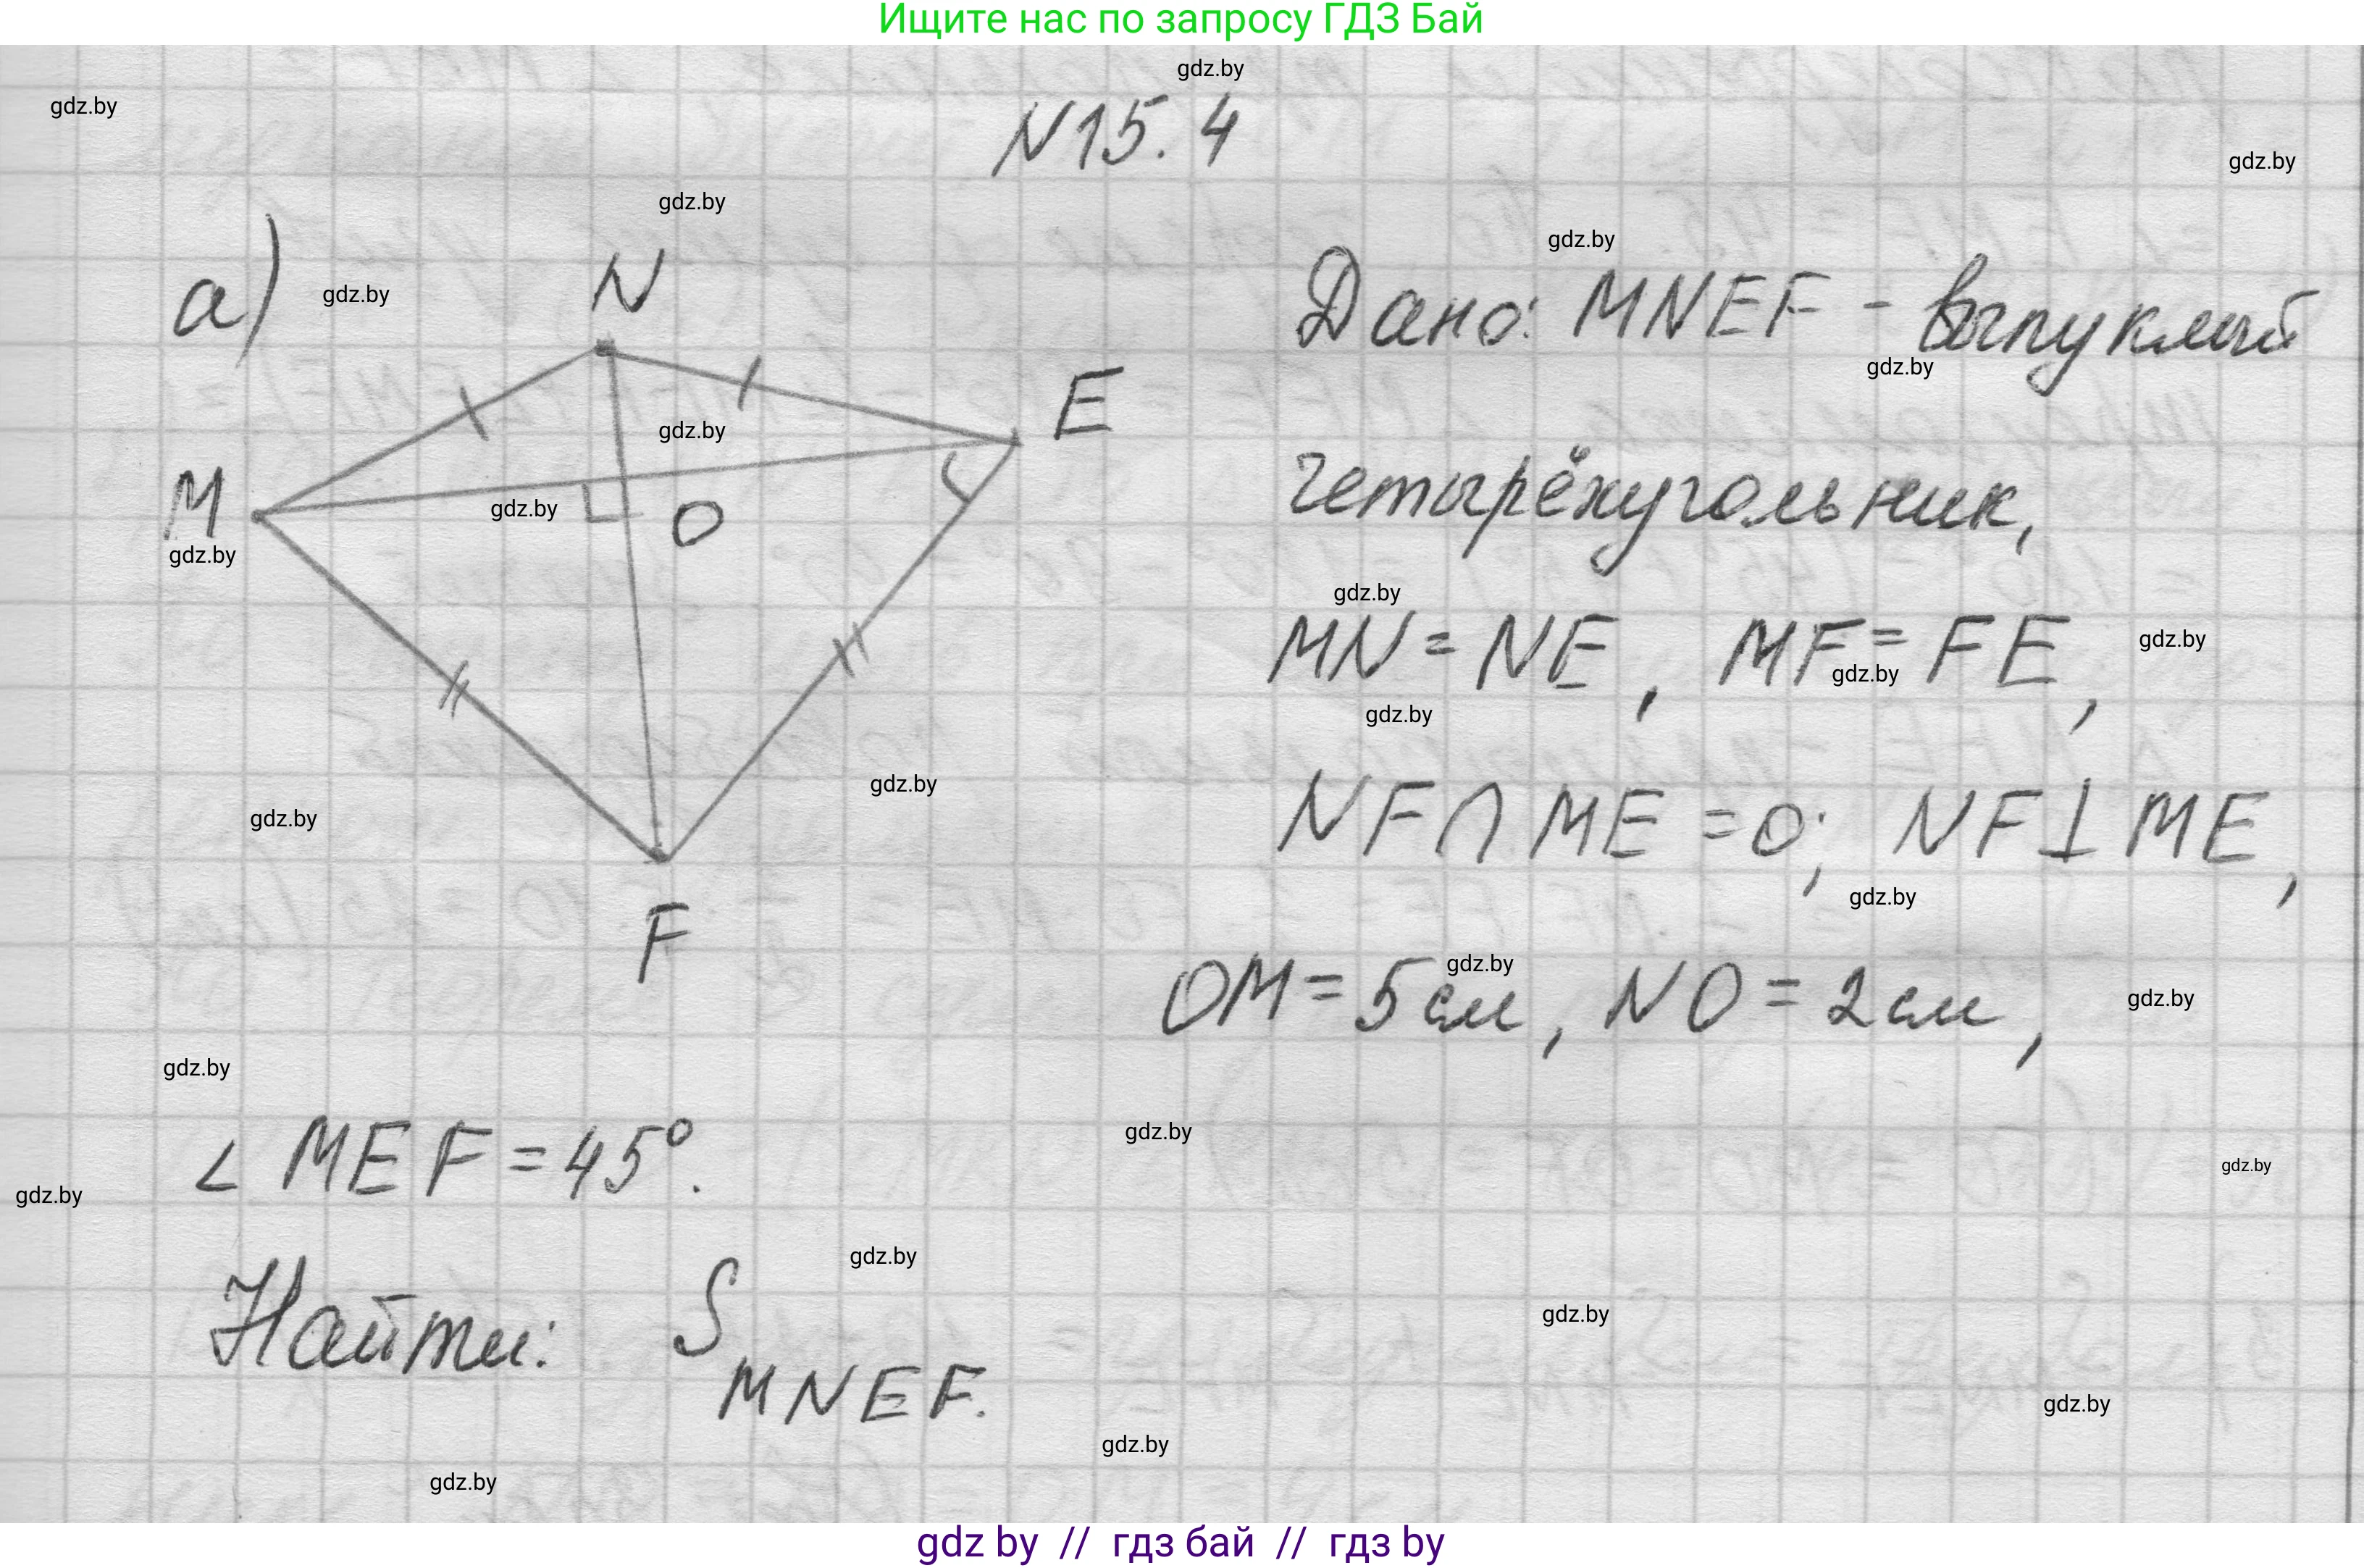 Ищите нас по запросу ГДЗ Бай
gdz.by
gdz.by
N15.4
gdz.by
gdz.by
gdz.by
а)
gdz.by
N
Дано: MNEF - выпуклый
gdz.by
E
gdz.by
M
gdz.by
O
четырёхугольник,
gdz.by
gdz.by
MN = NE, MF = FE,
gdz.by
gdz.by
gdz.by
gdz.by
gdz.by
NF ∩ ME = O; NF ⊥ ME,
gdz.by
F
OM = 5 см, NO = 2 см,
gdz.by
gdz.by
gdz.by
gdz.by
∠ MEF = 45°.
gdz.by
gdz.by
gdz.by
Найти: S MNEF.
gdz.by
gdz.by
gdz.by
gdz.by
gdz by // гдз бай // гдз by